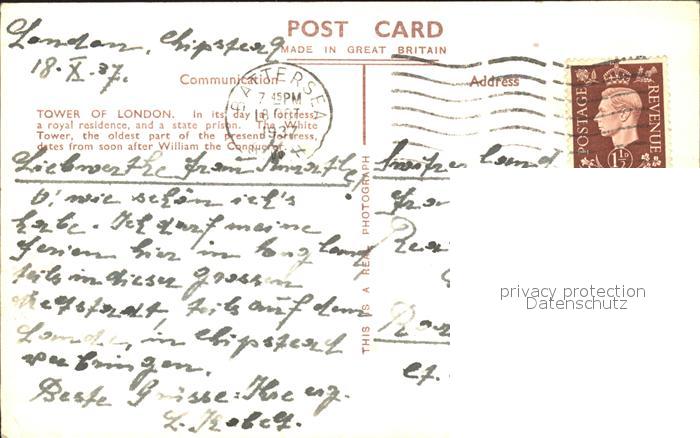 London, Chipstead
18.X.37.
POST CARD
MADE IN GREAT BRITAIN
Communication
Address
BATTERSEA
7 45 PM
18
TOWER OF LONDON. In its day a fortress,
a royal residence, and a state prison. The White
Tower, the oldest part of the present fortress,
dates from soon after William the Conqueror.
POSTAGE
REVENUE
1½D
Liebwerthe Frau
O! wie schön ich's
habe. Ich darf meine
Ferien hier in
teils in dieser grossen
Weltstadt, teils auf dem
Lande, in Chipstead
verbringen.
Beste Grüsse: Ihre erg.
THIS IS A REAL PHOTOGRAPH
Switzerland
privacy protection
Datenschutz